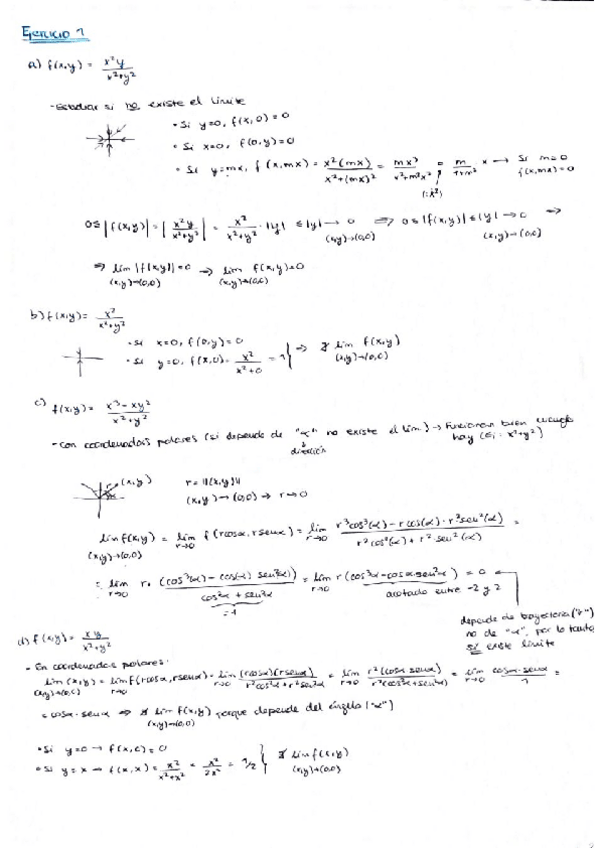 Ejercicio 1
a) f(x,y) = x²y / x²+y²
- Estudiar si no existe el límite
• Si y=0, f(x,0) = 0
• Si x=0, f(0,y) = 0
• Si y=mx, f(x,mx) = x²(mx) / x²+(mx)² = mx³ / x²+m²x² = m / 1+m² · x → Si m=0 f(x,mx)=0
(:x²)
0≤ |f(x,y)| = | x²y / x²+y² | = x² / x²+y² · |y| ≤ |y| → 0 ⇒ 0≤ |f(x,y)| ≤ |y| → 0 ⇒
(x,y)→(0,0) (x,y)→(0,0)
⇒ lím |f(x,y)| = 0 → lím f(x,y)=0
(x,y)→(0,0) (x,y)→(0,0)
b) f(x,y) = x² / x²+y²
• Si x=0, f(0,y) = 0
• Si y=0, f(x,0) = x² / x²+0 = 1 } ⇒ ∄ lím f(x,y)
(x,y)→(0,0)
c) f(x,y) = x³ - xy² / x²+y²
- Con coordenadas polares (si depende de "α" no existe el lím.) → Funcionan bien cuando
dirección hay (Ej: x²+y²)
(x,y) r = ||(x,y)||
(x,y) → (0,0) → r→0
lím f(x,y) = lím f(r cosα, r senα) = lím r³cos³(α) - r cos(α) · r² sen²(α) / r² cos²(α) + r² sen²(α) =
(x,y)→(0,0) r→0 r→0
= lím r · (cos³(α) - cos(α) sen²(α)) / cos²α + sen²α = lím r (cos³α - cosα sen²α) = 0
r→0 =1 r→0 acotado entre -2 y 2
depende de trayectoria ("r")
no de "α", por lo tanto
SÍ existe límite
d) f(x,y) = xy / x²+y²
- En coordenadas polares:
lím (x,y) = lím f(r cosα, r senα) = lím (r cosα)(r senα) / r²cos²α + r²sen²α = lím r²(cosα senα) / r²(cos²α + sen²α) = lím cosα · senα / 1 =
(x,y)→(0,0) r→0 r→0 r→0 r→0
= cosα · senα ⇒ ∄ lím f(x,y) porque depende del ángulo ("α")
(x,y)→(0,0)
• Si y=0 → f(x,0) = 0
• Si y=x → f(x,x) = x² / x²+x² = x² / 2x² = 1/2 } ∄ lím f(x,y)
(x,y)→(0,0)